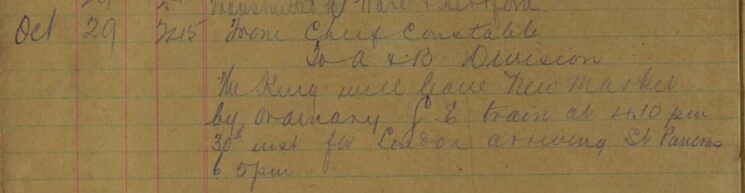 Transmitted to Ware & Hertford
Oct 29 7.15 From Chief Constable
To A & B Division
The King will leave New Market
by ordinary G. E. train at 4.10 pm
30th inst for London arriving St Pancras
6 5 pm